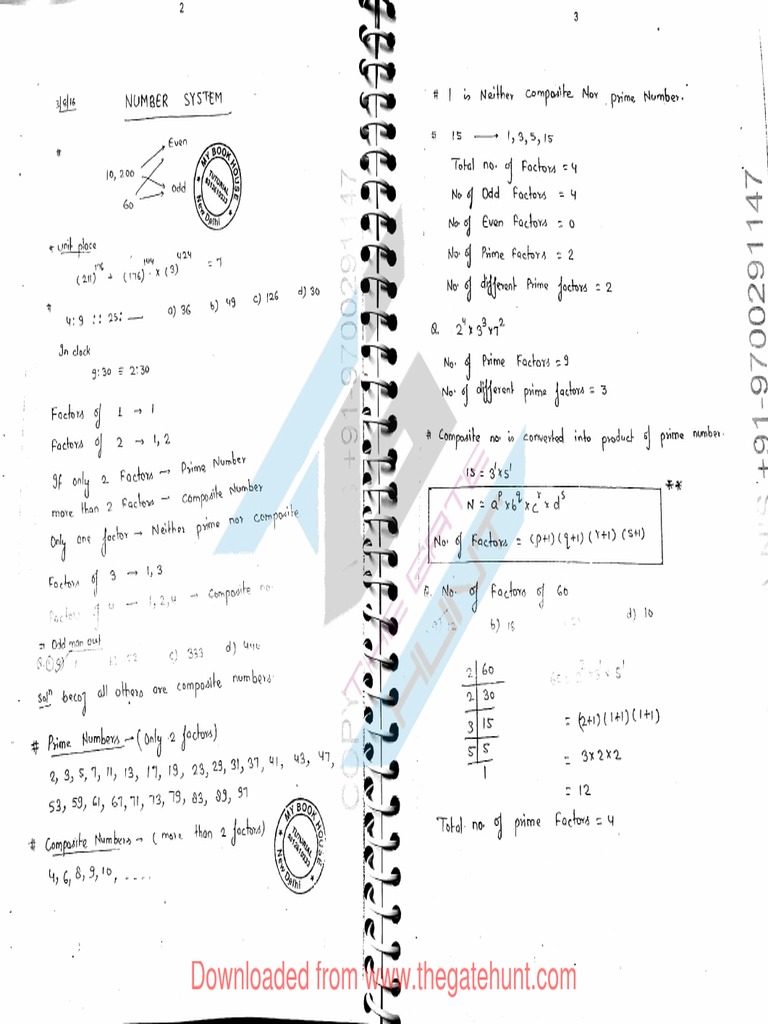 2
3/9/16
NUMBER SYSTEM
*
Even
10, 200
odd
60
MY BOOK HOUSE
TUTORIAL
New Delhi
* unit place
(211)^176 + (176)^144 × (3)^424 = 7
*
4 : 9 :: 25 : — a) 36 b) 49 c) 126 d) 30
In clock
9:30 ≡ 2:30
Factors of 1 → 1
Factors of 2 → 1, 2
If only 2 Factors → Prime Number
more than 2 Factors – Composite Number
Only one factor → Neither prime nor composite
Factors of 3 → 1, 3
Factors of 4 – 1, 2, 4 – Composite no.
= Odd man out
c) 333 d) 444
Solⁿ becoz all others are composite numbers.
# Prime Numbers → (Only 2 factors)
2, 3, 5, 7, 11, 13, 17, 19, 23, 29, 31, 37, 41, 43, 47,
53, 59, 61, 67, 71, 73, 79, 83, 89, 97
# Composite Numbers → (more than 2 factors)
4, 6, 8, 9, 10, ....
MY BOOK HOUSE
TUTORIAL
New Delhi
3
# 1 is Neither Composite Nor prime Number.
15 → 1, 3, 5, 15
Total no. of Factors = 4
No of Odd Factors = 4
No of Even Factors = 0
No of Prime Factors = 2
No. of different Prime factors = 2
Q. 2^4 × 3^3 × 7^2
No. of Prime Factors = 9
No. of different prime factors = 3
# Composite no is converted into product of prime number.
15 = 3^1 × 5^1
**
N = a^p × b^q × c^r × d^s
No. of Factors = (p+1) (q+1) (r+1) (s+1)
Q. No. of Factors of 60
b) 15 d) 10
2 | 60
2 | 30
3 | 15
5 | 5
1
= (2+1) (1+1) (1+1)
= 3 × 2 × 2
= 12
Total no of prime Factors = 4
COPY
THE GATE
HUNT
+91-9700291147
+91-9700291147
Downloaded from www.thegatehunt.com